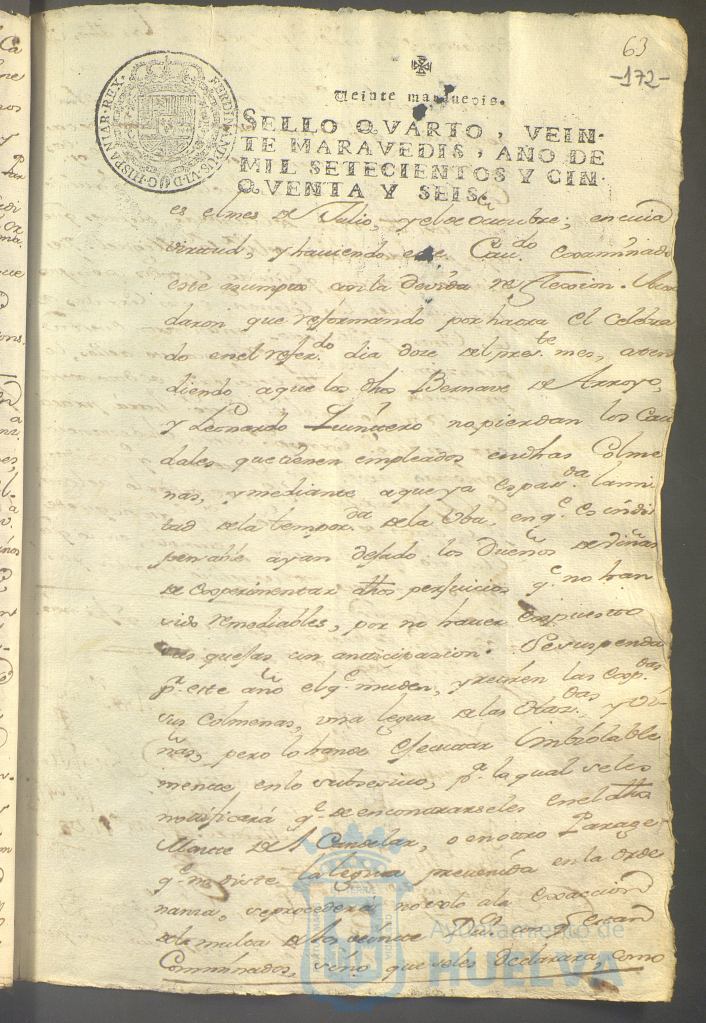 63
-172-
FERDINANDUS VI D G HISPANIAR REX
Veinte maravedis.
SELLO QVARTO, VEIN-
TE MARAVEDIS, AÑO DE
MIL SETECIENTOS Y CIN-
QVENTA Y SEIS.
es el mes de Julio, y el de Octubre; en cuia
virtud, y haviendo este Cav.do examinado
este asumpto con la devida reflecsion. Acor
daron que reformando por haora el Celebra
do en el refer.do dia doze del pres.te mes, aten
diendo a que los dhos Bernave de Arroyo,
y Leonardo Quintero no pierdan los Cau
dales que tienen empleados en dhas Colme
nas, y mediante a que ya es pas.da la mi
tad de la tempor.da de la Uba, en q.e es indis
pensable ayan dejado los Dueños de Viñas
de experimentar dhos perjuicios q.e no han
sido remediables, por no haver expuesto
sus quejas con anticipazion. Se suspenda
p.r este año el q.e muden, y retiren las exp.das
sus Colmenas, una legua de las Haz.das y Vi-
ñas, pero lo han de Executar Imbiolable
mente en lo subsesivo, p.a lo qual se les
notificará q.e de encontrarseles en el dho
Monte de el Candelar, o en otro Parage
q.e no diste la legua prevenida en la orde
nanza, se procederá no solo a la exaccion
de la multa de los veinte Du.os con q.e estan
Comminados, sino que se les declarará, como
Ayuntamiento de
HUELVA